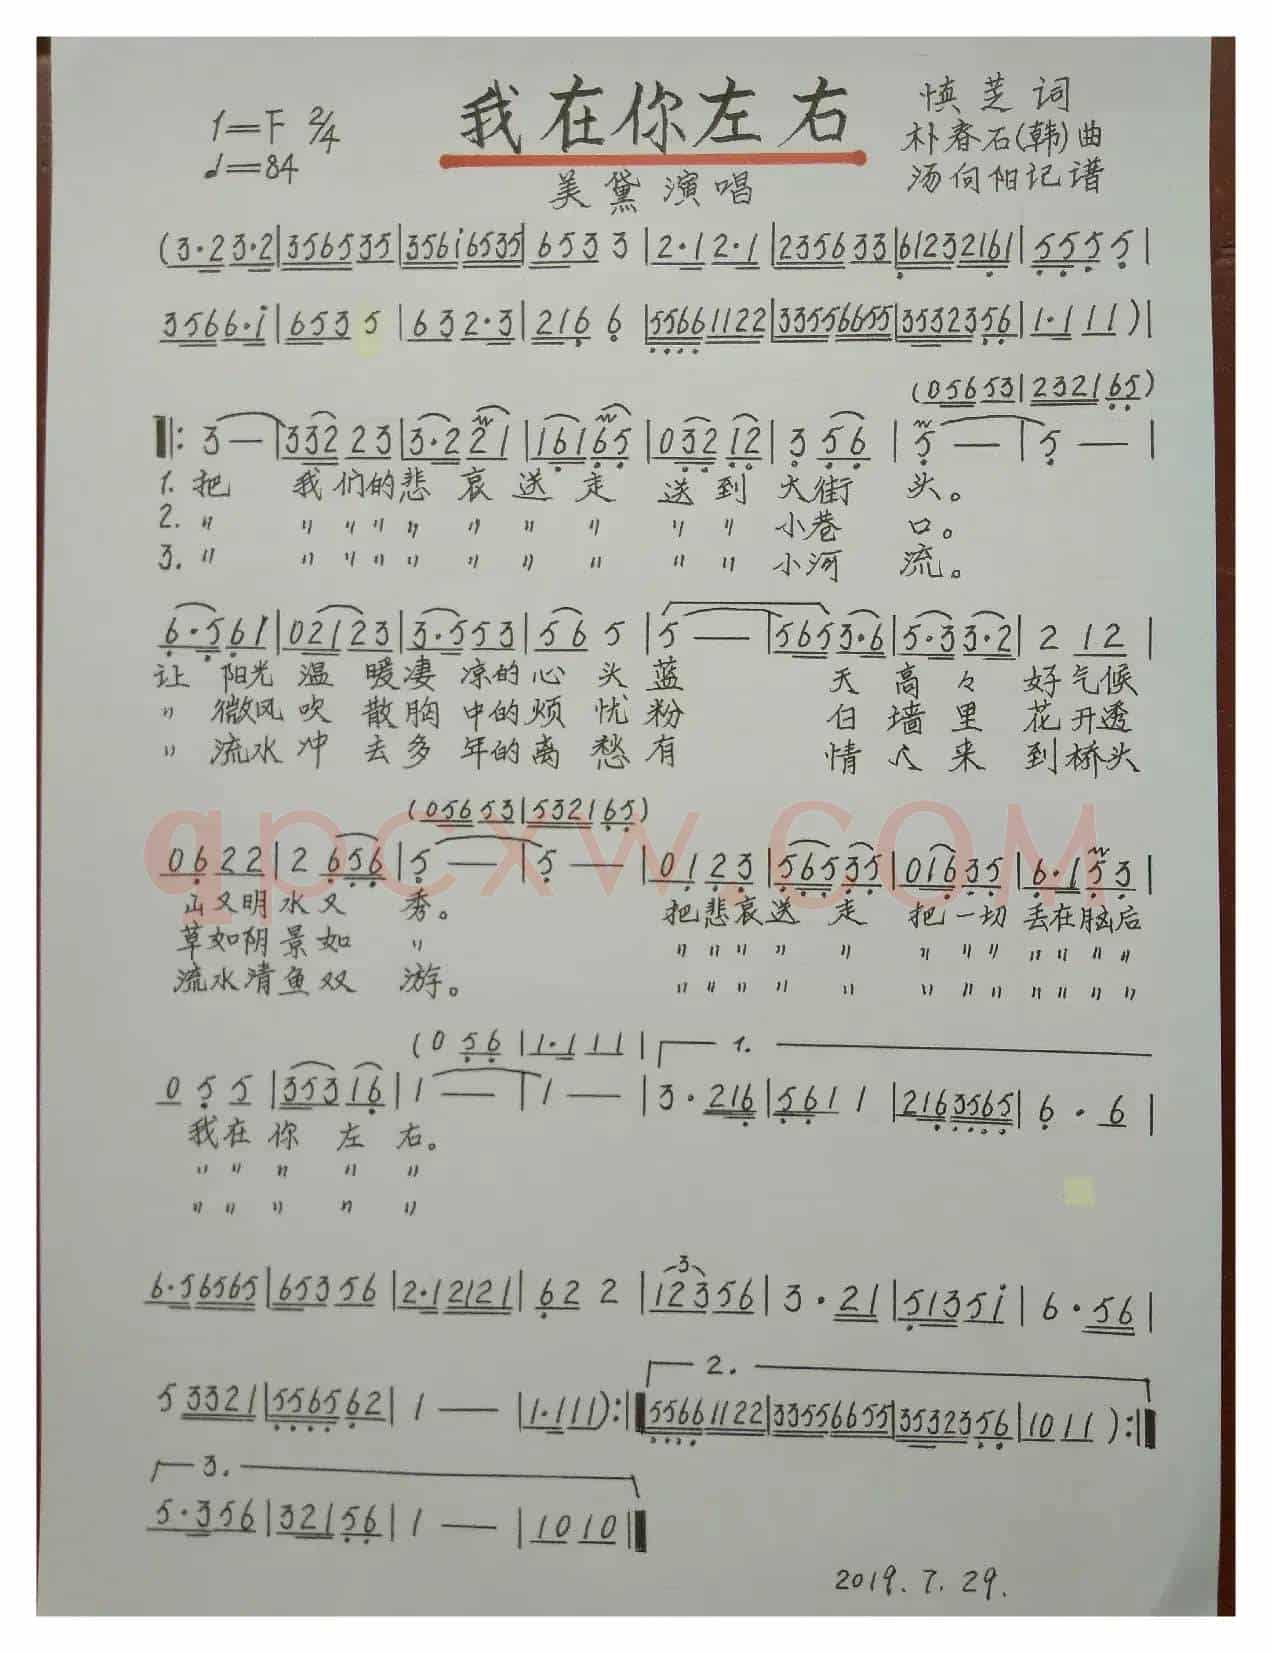 我在你左右
1=F 2/4
♩=84
慎芝词
朴春石(韩)曲
汤向阳记谱
美黛演唱
(3·2 3·2|356535|356i6535|6533|2·1 2·1|235633|61232161|5555|
3566·i|6535|632·3|2166|55661122|33556655|3532356|1·111)|
(05653|232165)
‖:3—|33223|3·221|16165|03212|356|5—|5—|
1.把 我们的悲哀送走 送到大街 头。
2.〃 〃〃〃〃〃〃〃 〃〃小巷 口。
3.〃 〃〃〃〃〃〃〃 〃〃小河 流。
6·561|02123|3·553|565|5—|5653·6|5·33·2|212|
让阳光温暖凄凉的心头蓝 天高々好气候
〃微风吹散胸中的烦忧粉 白墙里花开透
〃流水冲去多年的离愁有 情人来到桥头
(05653|532165)
0622|2656|5—|5—|0123|56535|01635|6·153|
山又明水又 秀。 把悲哀送走 把一切丢在脑后
草如阴景如 〃 〃〃〃〃〃 〃〃〃〃〃〃〃
流水清鱼双 游。 〃〃〃〃〃 〃〃〃〃〃〃〃
(056|1·111|1.
055|35316|1—|1—|3·216|5611|2163565|6·6|
我在你左右。
〃〃〃〃〃
〃〃〃〃〃
6·56565|65356|2·12121|622|12356|3·21|5135i|6·56|
3
2.
53321|556562|1—|1·111):‖55661122|33556655|3532356|1011):‖
3.
5·356|32156|1—|1010‖
2019.7.29.
qpcxw.COM